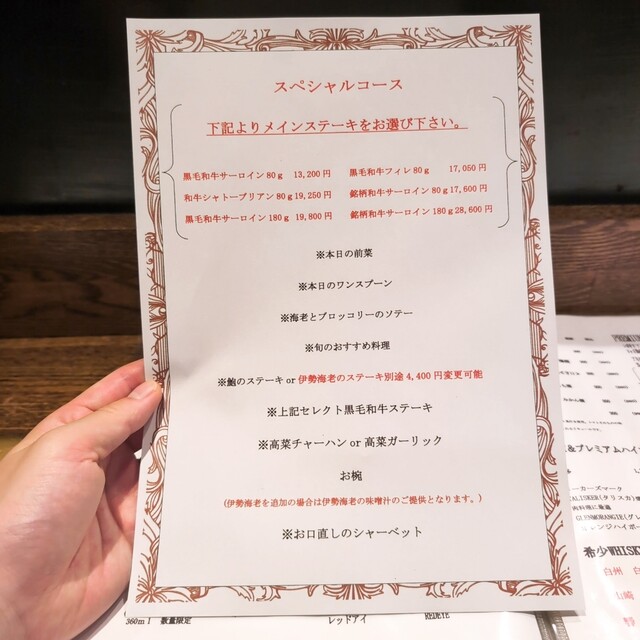 スペシャルコース
下記よりメインステーキをお選び下さい。
黒毛和牛サーロイン80g 13,200円 黒毛和牛フィレ80g 17,050円
和牛シャトーブリアン80g19,250円 銘柄和牛サーロイン80g17,600円
黒毛和牛サーロイン180g 19,800円 銘柄和牛サーロイン180g28,600円
※本日の前菜
※本日のワンスプーン
※海老とブロッコリーのソテー
※旬のおすすめ料理
※鮑のステーキ or 伊勢海老のステーキ別途4,400円変更可能
※上記セレクト黒毛和牛ステーキ
※高菜チャーハン or 高菜ガーリック
お椀
(伊勢海老を追加の場合は伊勢海老の味噌汁のご提供となります。)
※お口直しのシャーベット
&プレミアムハイ
ーカーズマーク
ALISKER(タリスカ)
GLENMORANGIE(グレ
レンジハイボー
希少WHISK
白州 白
山崎
360ml 数量限定 レッドアイ REDEYE